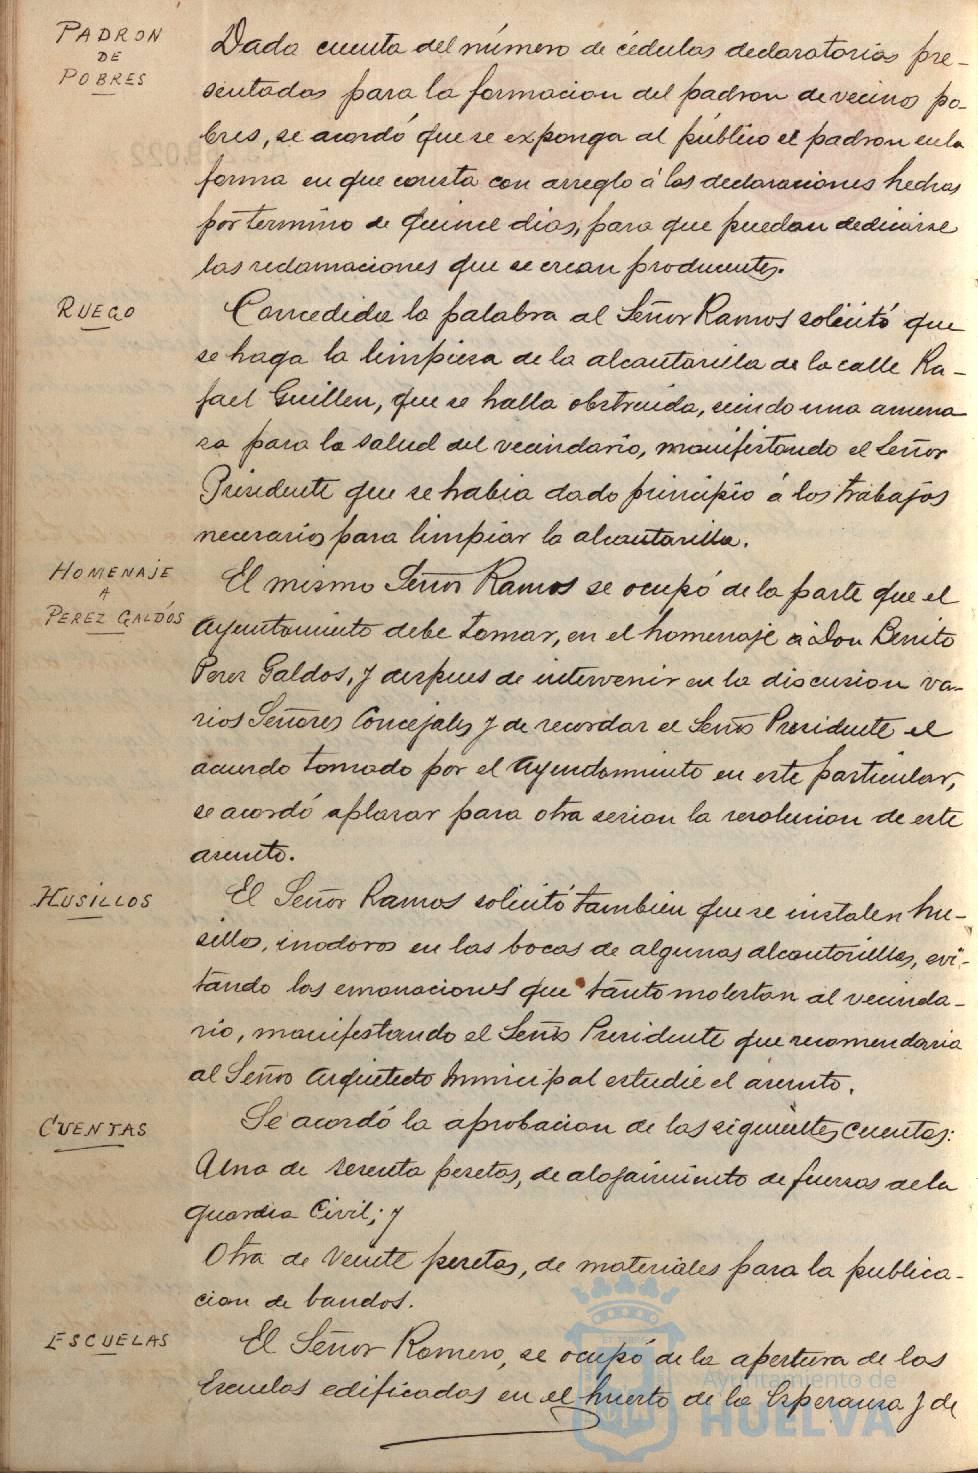 PADRON
DE
POBRES
Dada cuenta del número de cédulas declaratorias pre-
sentadas para la formacion del padron de vecinos po-
bres, se acordó que se exponga al público el padron en la
forma en que consta con arreglo á las declaraciones hechas
por termino de quince dias, para que puedan dedicirse
las reclamaciones que se crean producentes.
RUEGO
Concedida la palabra al Señor Ramos solicitó que
se haga la limpieza de la alcantarilla de la calle Ra-
fael Guillen, que se halla obstruida, siendo una amena
za para la salud del vecindario, manifestando el Señor
Presidente que se habia dado principio á los trabajos
necesarios para limpiar la alcantarilla.
HOMENAJE
A
PEREZ GALDÓS
El mismo Señor Ramos se ocupó de la parte que el
Ayuntamiento debe tomar, en el homenaje á Don Benito
Perez Galdos, y despues de intervenir en la discusion va-
rios Señores Concejales y de recordar el Señor Presidente el
acuerdo tomado por el Ayundamiento en este particular,
se acordó aplazar para otra sesion la resolucion de este
asunto.
HUSILLOS
El Señor Ramos solicitó tambien que se instalen hu-
sillos, inodoros en las bocas de algunas alcantarillas, evi-
tando las emanaciones que tanto molestan al vecinda-
rio, manifestando el Señor Presidente que recomendaria
al Señor Arquitecto Municipal estudie el asunto.
CUENTAS
Se acordó la aprobacion de las siguientes cuentas:
Una de sesenta pesetas, de alojamiento de fuerzas de la
guardia Civil; y
Otra de veinte pesetas, de materiales para la publica-
cion de bandos.
ESCUELAS
El Señor Romero, se ocupó de la apertura de las
Escuelas edificadas en el huerto de la Esperanza y de
Ayuntamiento de
HUELVA